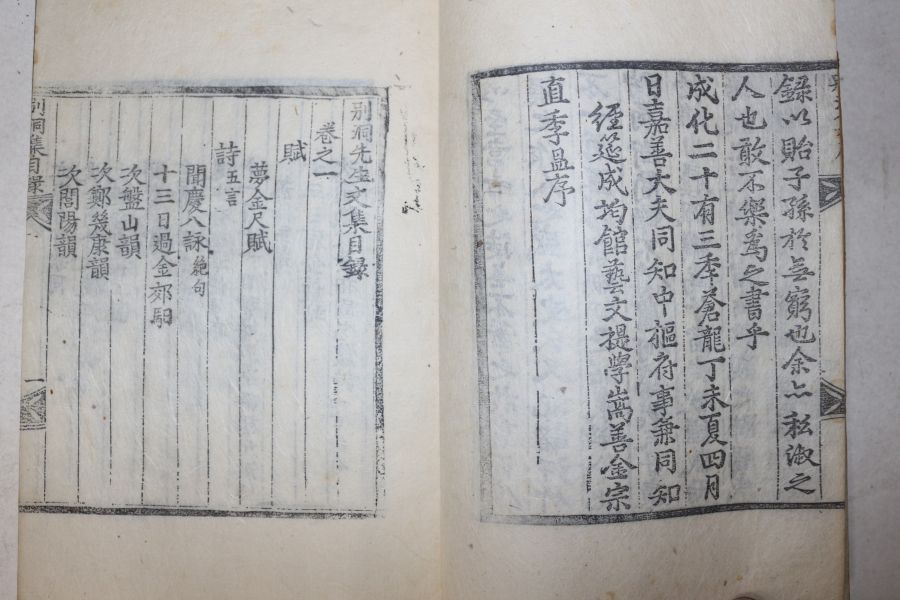 錄以貽子孫於無窮也余亦私淑之
人也敢不樂爲之書乎
成化二十有三季蒼龍丁未夏四月
日嘉善大夫同知中樞府事兼同知
經筵成均館藝文提學嵩善金宗
直季昷序
別洞先生文集目錄
卷之一
賦
夢金尺賦
詩五言
聞慶八詠絶句
十三日過金郊馹
次盤山韻
次鄭幾康韻
次閭陽韻
別洞集目錄
一